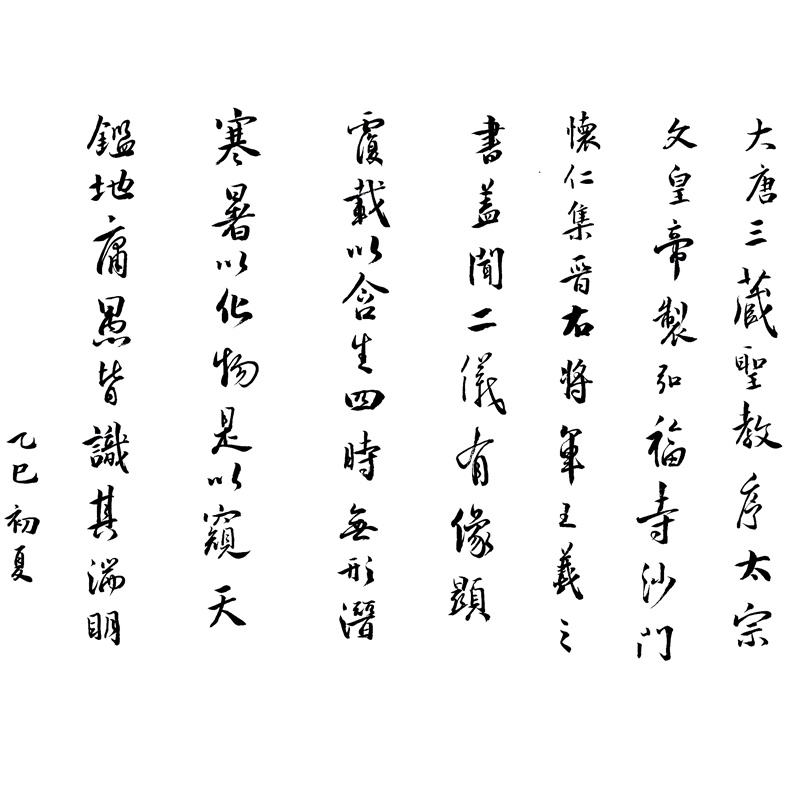 大唐三藏聖教序太宗
文皇帝製弘福寺沙門
懷仁集晉右將軍王羲之
書蓋聞二儀有像顯
覆載以含生四時無形潛
寒暑以化物是以窺天
鑑地庸愚皆識其端明
乙巳初夏